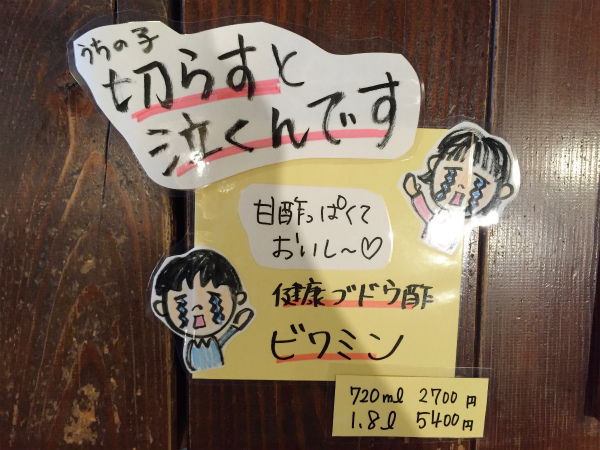 うちの子
切らすと
泣くんです
甘酢っぱくて
おいし〜♡
健康ブドウ酢
ビワミン
720ml 2700円
1.8l 5400円